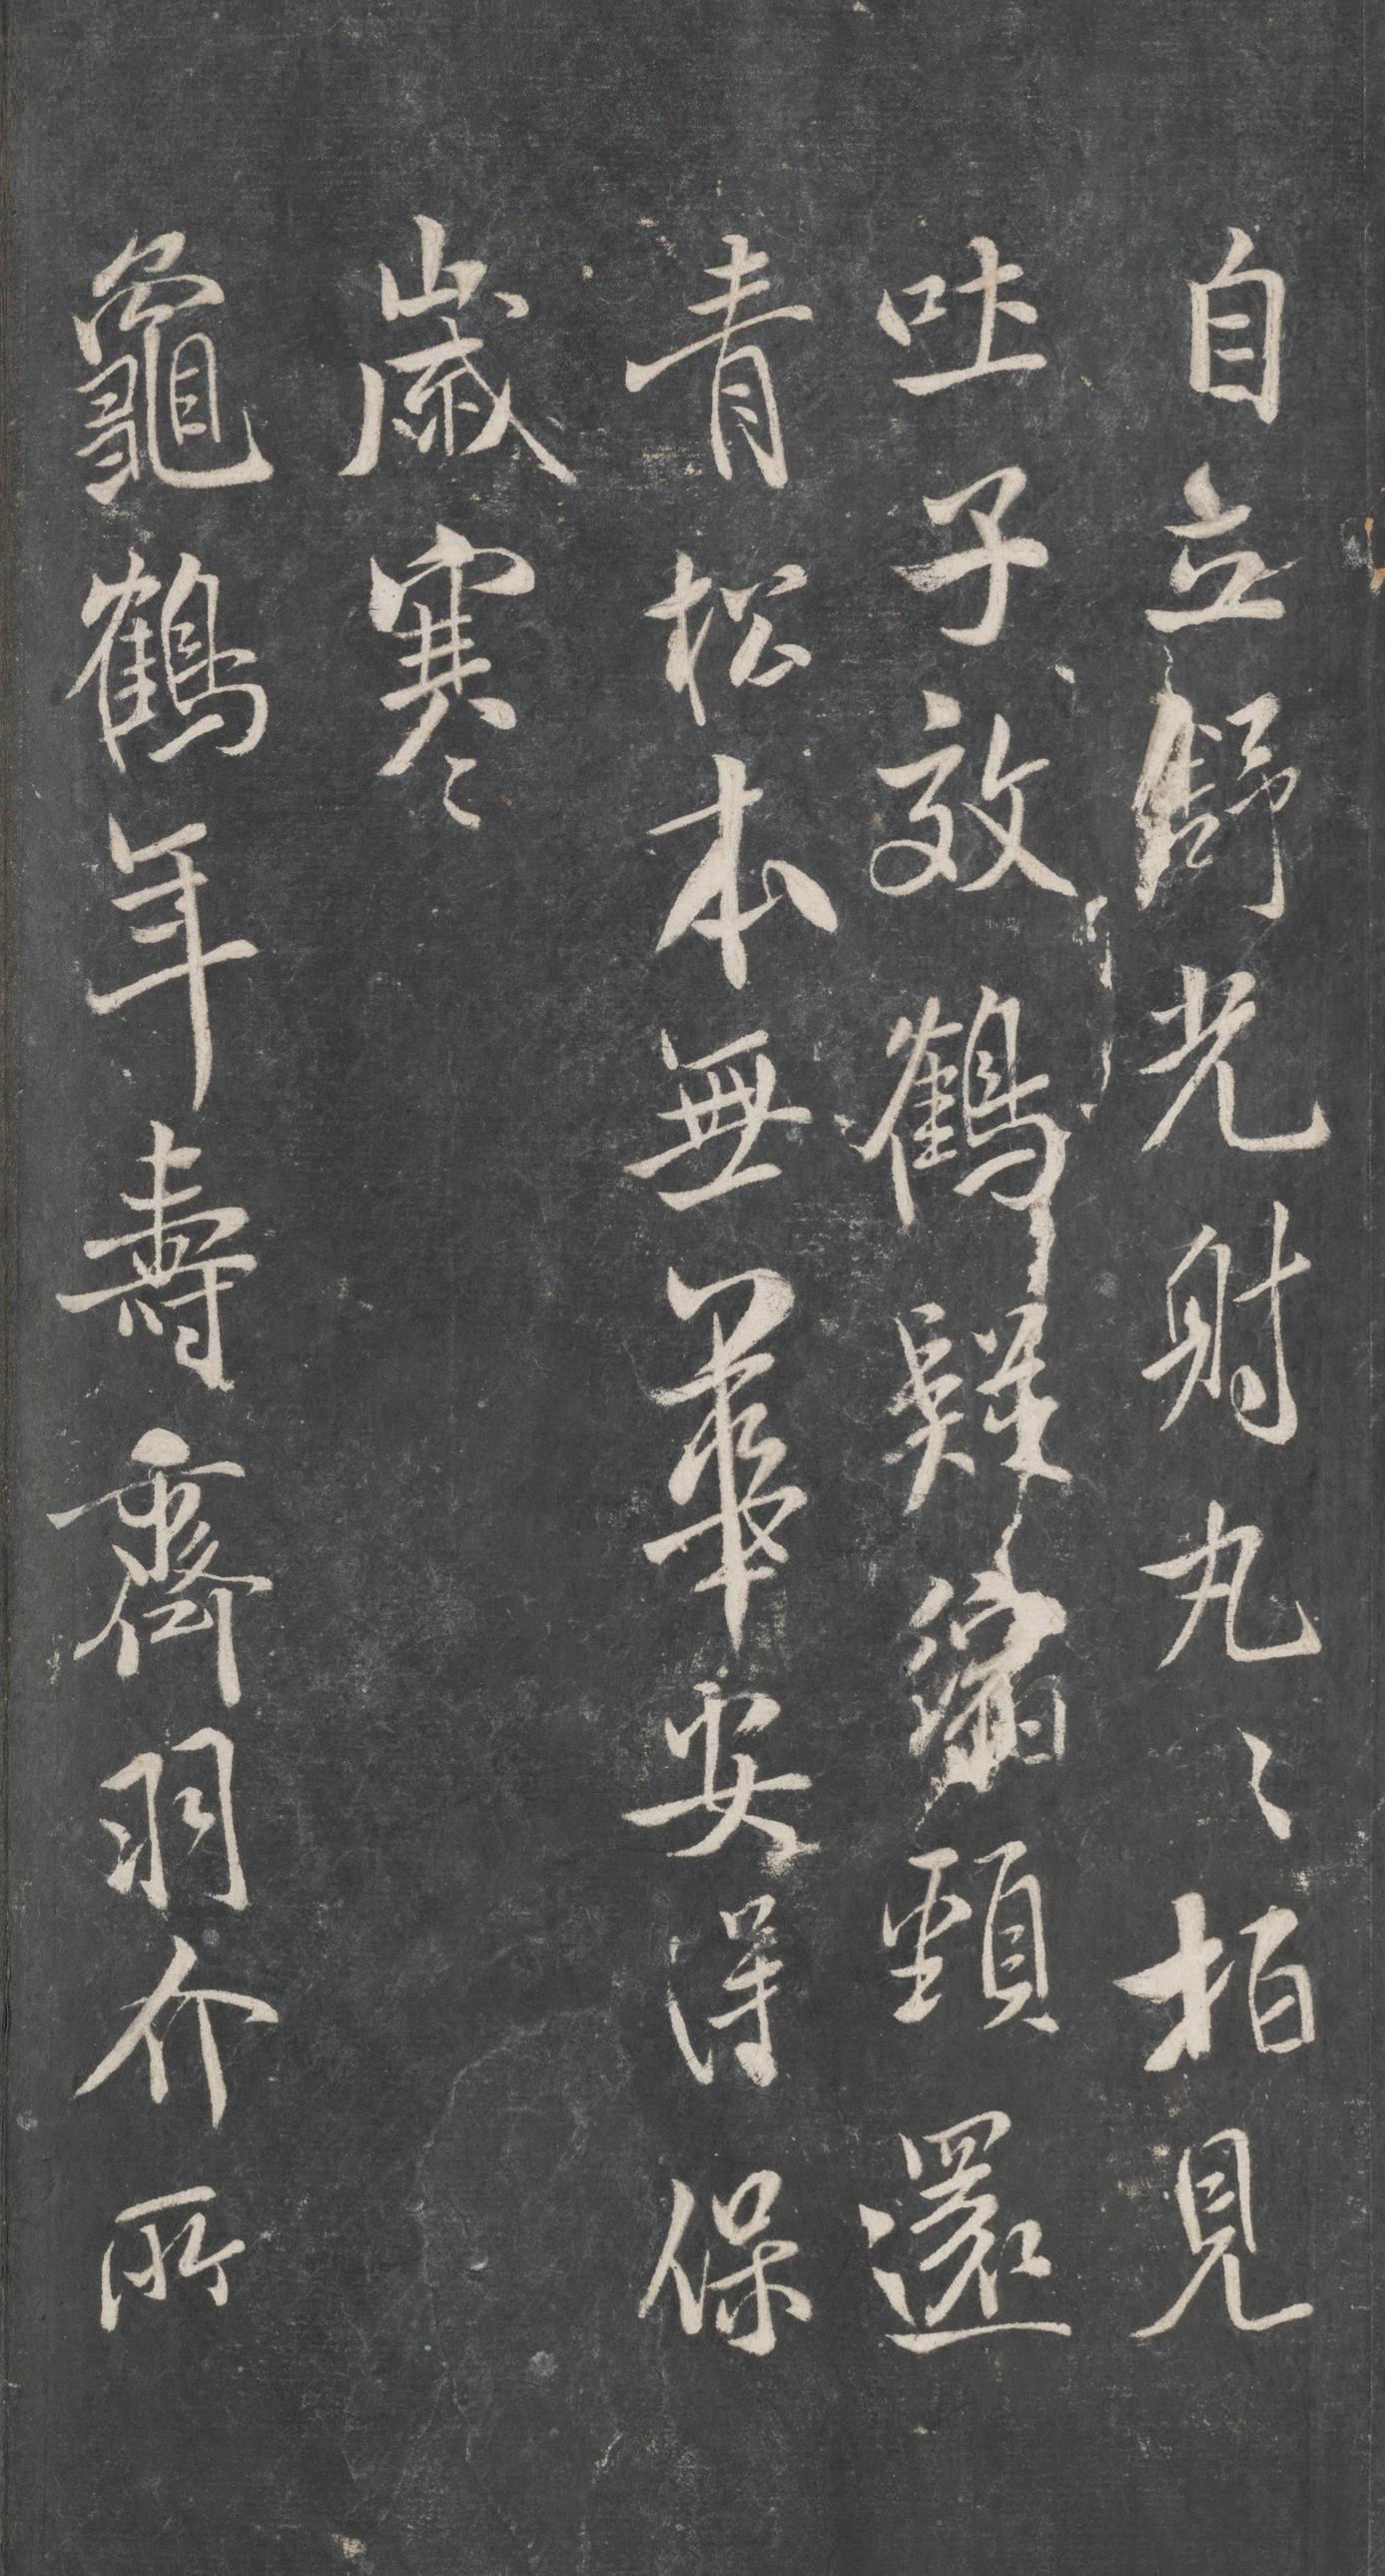 自立舒光射丸〻柏見
吐子效鶴疑縮頸還
青松本無華安得保
歲寒
龜鶴年壽齊羽介所